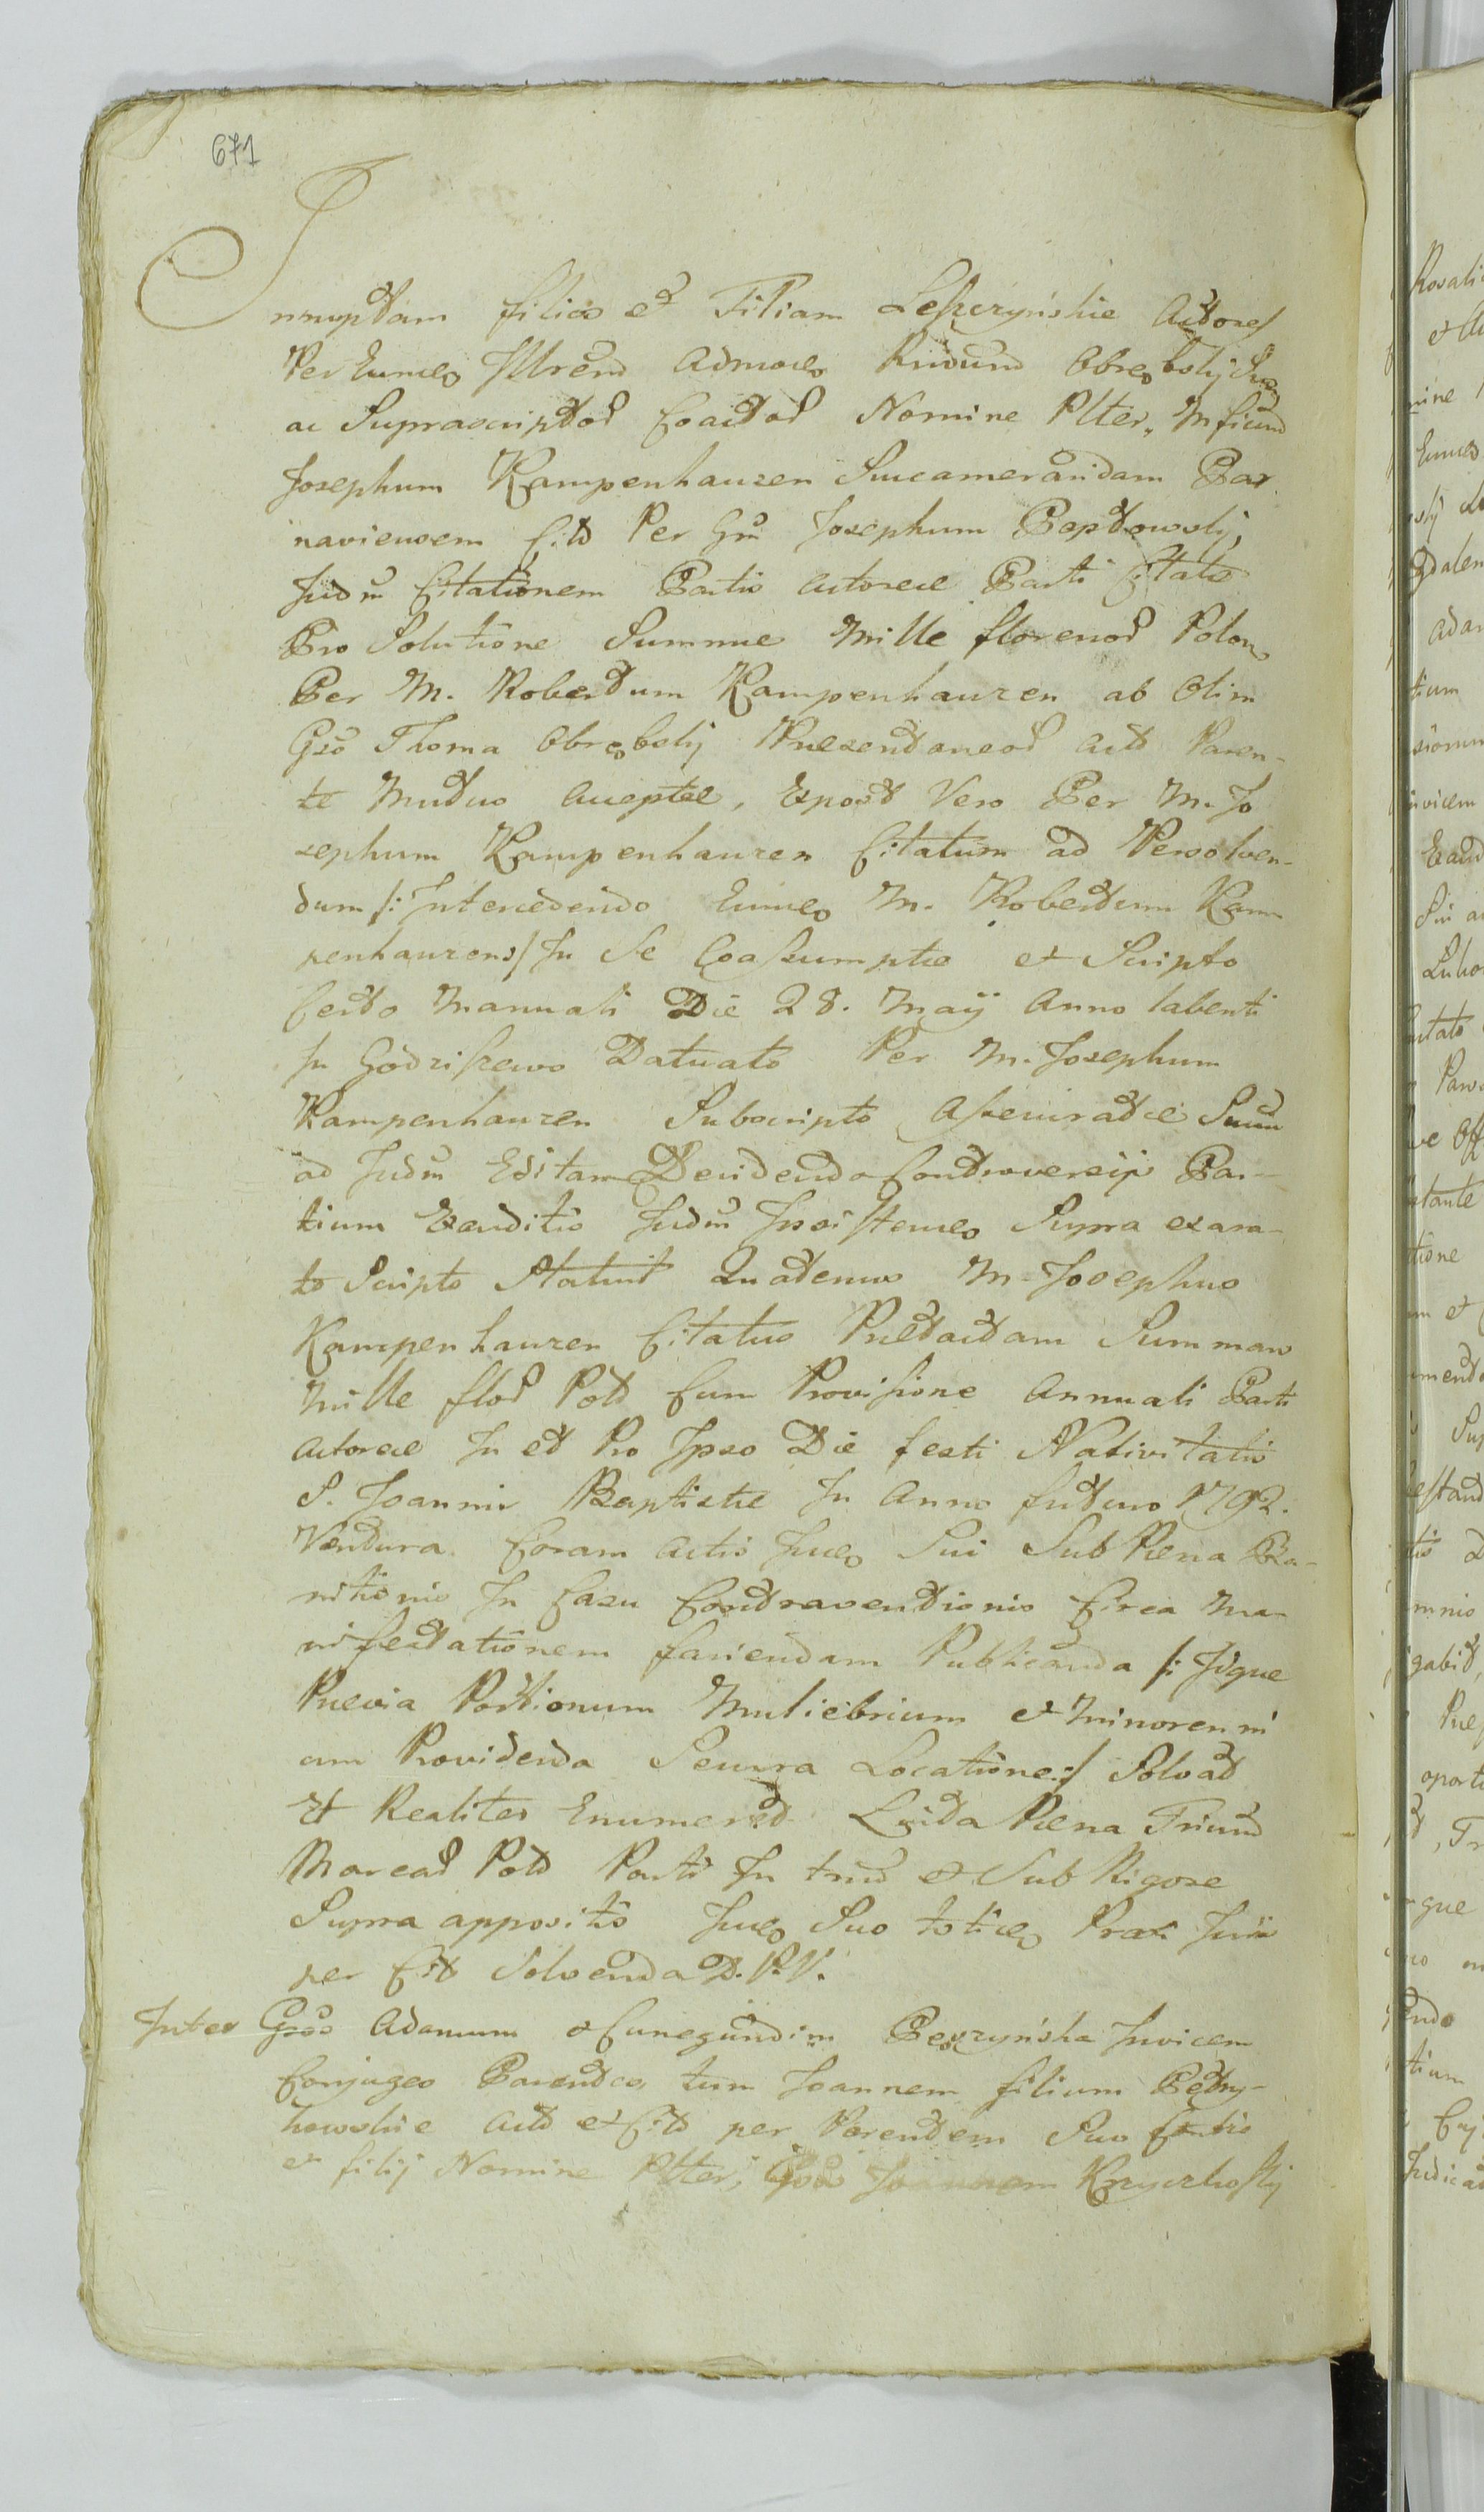 671
Innuptam filios et Filiam Leszczyńskie Actores
Per Eundem Illrem Admodum Rndum Obrębski Suo
ac Suprascriptor Coactor Nomine Pltter, Mficum
Josephum Kampenhauzen Succameraridam Par
naviensem Citt Per Gm Josephum Baptowski,
Judm Citationem Partis Actoreae Parti Citatae
Pro Solutione Summae Mille florenor Polon
Per M. Robertum Kampenhauzen ab Olim
Gso Thoma Obrębski Praesentaneor Act Paren-
te Mutuo Acceptae, Expost Vero Per M. Jo
sephum Kampenhauzen Citatum ad Persolven-
dum /: Intercedendo Eundem M. Robertum Kam
penhauzen :/ In Se Coassumptae et Scripto
Certo Manuali Die 28. Maij Anno labenti
In Godziszewo Datuato Per M. Josephum
Kampenhauzen Subscripto Assecuratae Suum
ad Judm Editam Decidendo Controversijs Par-
tium Exauditis Judm Insistendo Supra exara-
to Scripto Statuit Quatenus M. Josephus
Kampenhauzen Citatus Praetactam Summam
Mille flor Poll Cum Provisione Annuali Parti
Actoreae In et Pro Ipso Die festi Nativitatis
S. Joannis Baptistae In Anno futuro 1792.
Ventura Coram Actis Judo Sui Sub Paena Ba-
nitionis In Casu Contraventionis Circa Ma-
nifestationem faciendam Publicanda /: Idque
Praevia Portionum Muliebrium et Minorenni
um Providenda Secura Locatione :/ Solvat
Et Realiter Enumeret Luida Paena Trium
Marcar Poll Parti In tnd et Sub Rigore
Supra appositis Judo Suo toties Praxi Juris
per Citt Solvenda D. P. V.
Inter Gsos Adamum et Cunegundim Pexzyńska Invicem
Conjuges Parentes, tum Joannem filium Pętry-
kowskie Act et Citt per Parentem Suo
et filij Nomine Pltter, Gsos Joannem Krzyczkoski